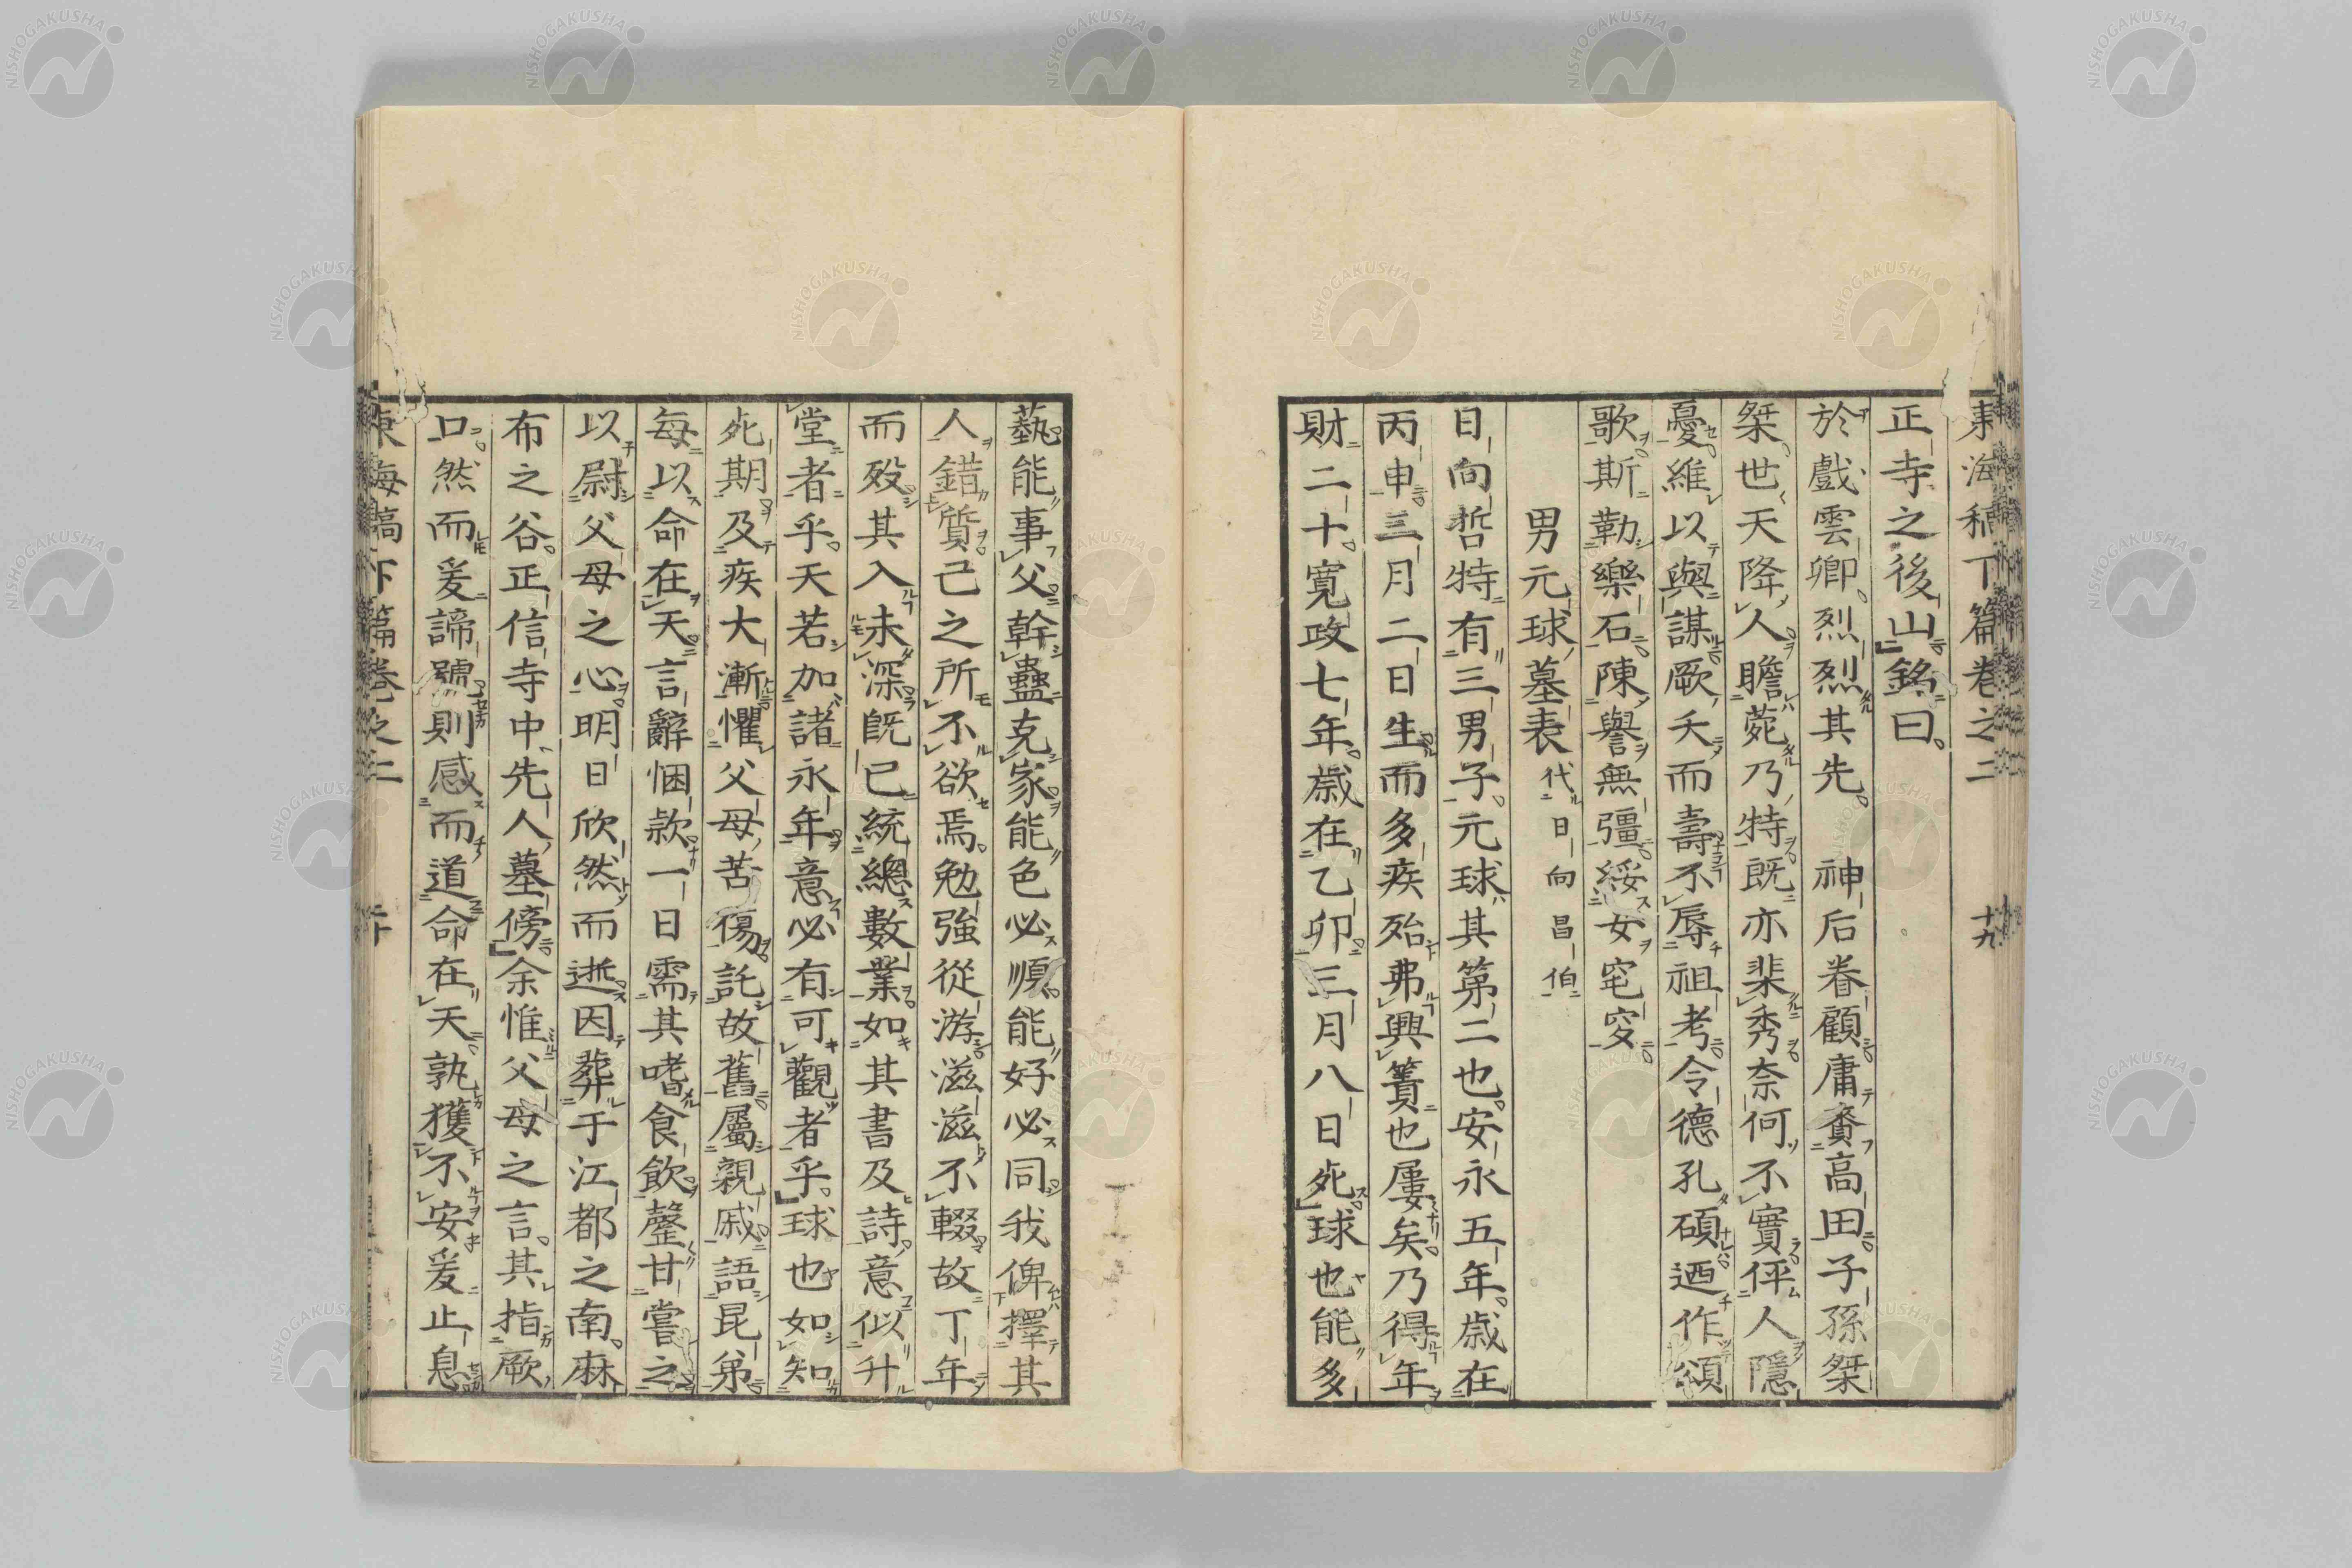 東海稿下篇卷之二 十九
正寺之後山銘曰
於戲雲卿烈烈其先 神后眷顧庸賚高田子孫桀
桀世天降人瞻薨乃特既亦棐秀奈何不實伻人隱
憂維以與謀厥夭而壽不辱祖考令德孔碩迺作頌
歌斯勒樂石陳譽無彊綏女宅窆
男元球墓表 代日向昌伯
日向哲特有三男子元球其第二也安永五年歲在
丙申三月二日生而多疾殆弗興簀也屢矣乃得年
財二十寬政七年歲在乙卯三月八日死球也能多
藝能事父幹蠱克家能色必順能好必同我俾擇其
人錯質己之所不欲焉勉強從游滋滋不輟故丁年
而歿其入未深既已統總數業如其書及詩意似升
堂者乎天若加諸永年意必有可觀者乎球也如知
死期及疾大漸懼父母苦傷託故舊屬親戚語昆弟
每以命在天言辭悃款一日需其嗜食飲罄甘嘗之
以尉父母之心明日欣然而逝因葬于江都之南麻
布之谷正信寺中先人墓傍余惟父母之言其指厥
口然而爰諦號則感而道命在天孰獲不安爰止息
東海稿下篇卷之二 二十
NISHOGAKUSHA